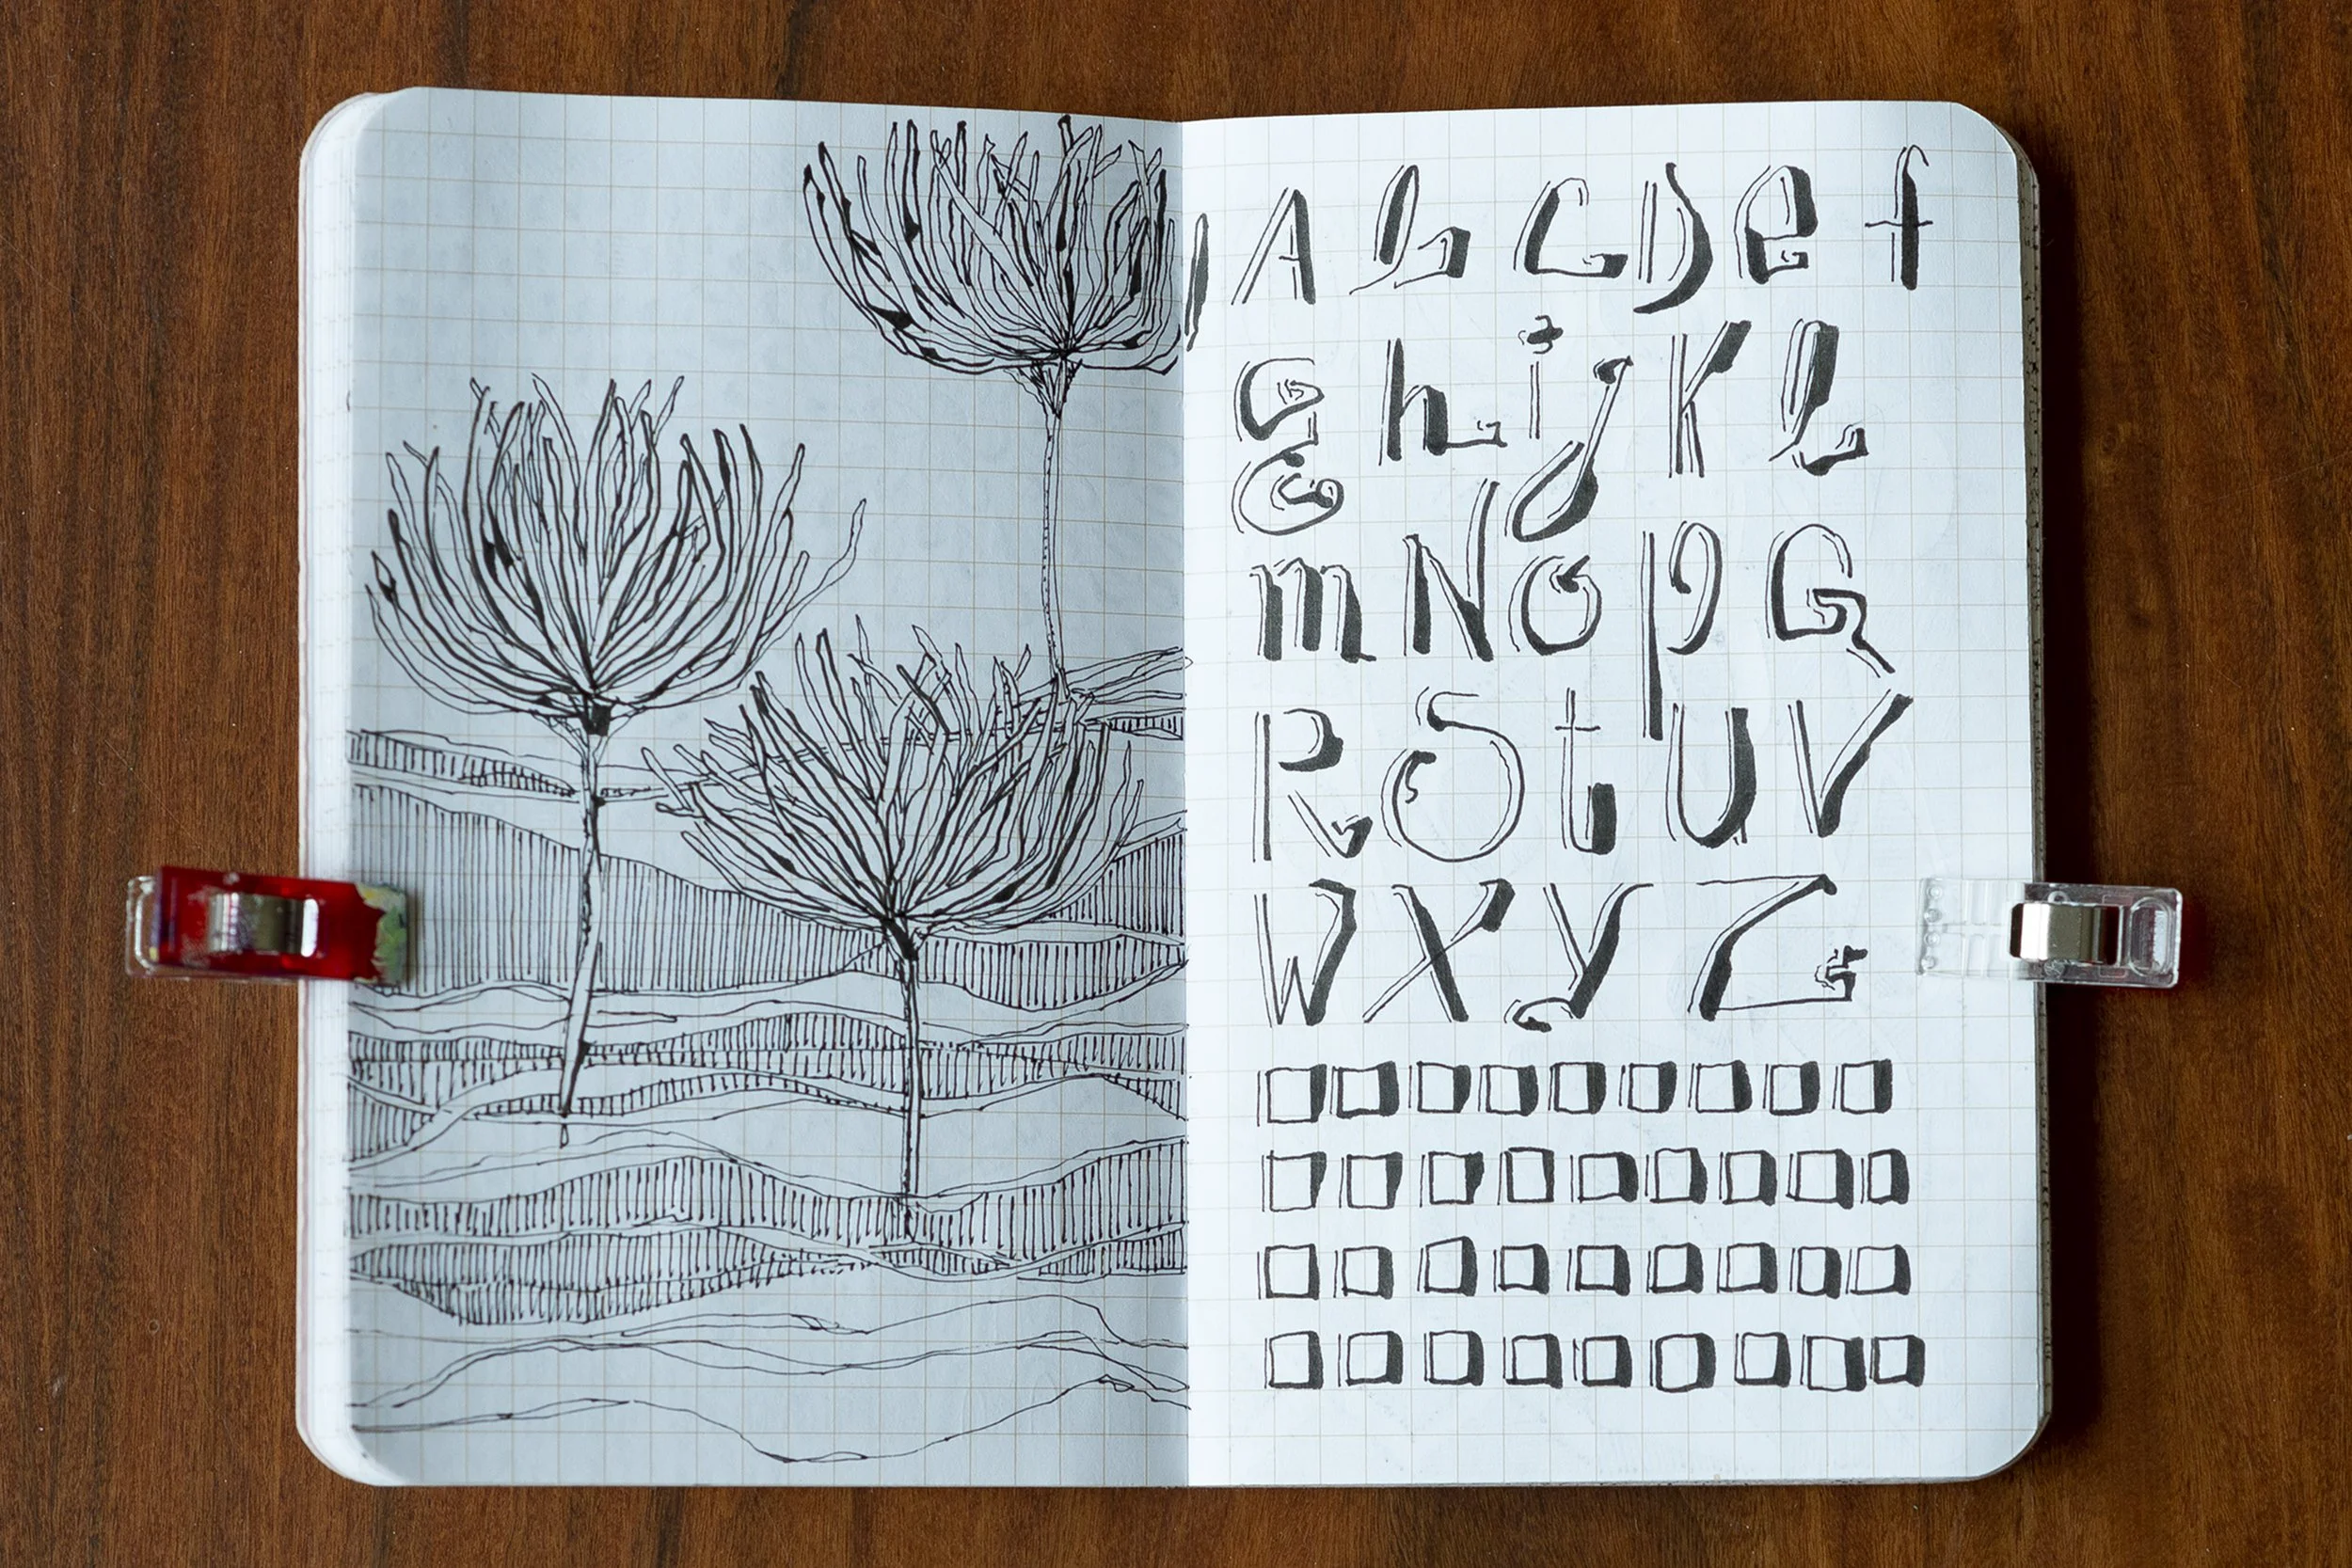 A b C D e f
G h i j K l
m N o p Q
R S t U V
W X y Z